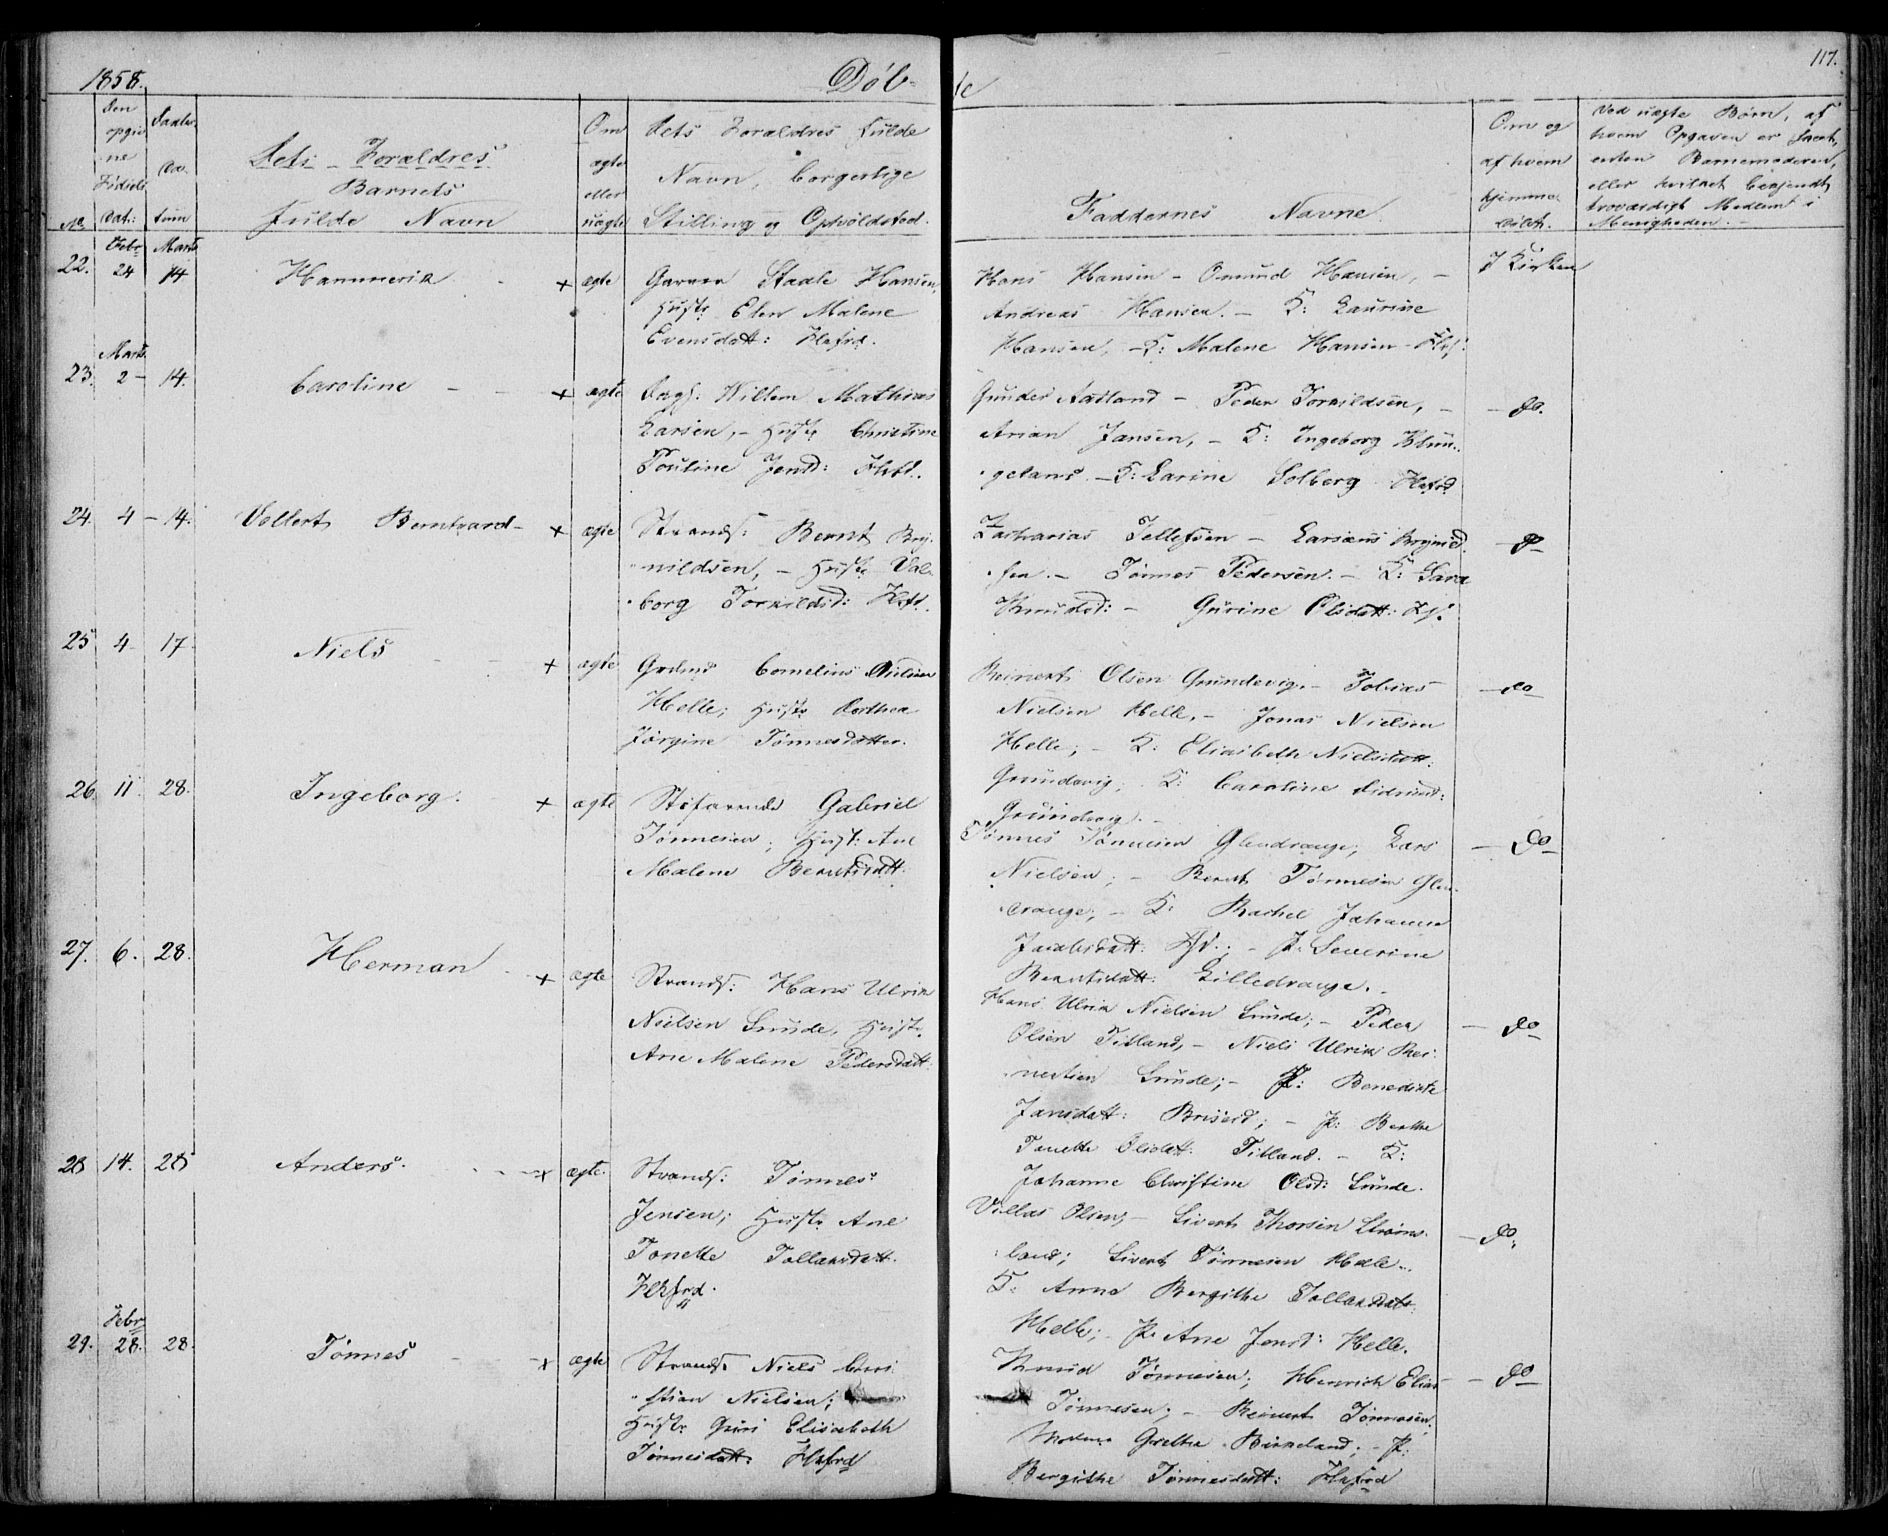 1858.
Døb-
te
117.
Den
opgiv
ne
Fødsels
Dat:
Daabs
Da
tum
Dets Forældres
Barnets
Fulde Navn
No
Om
ægte
eller
uægte
Dets Forældres Fulde
Navn, borgerlige
Stilling og Opholdsted.
Faddernes Navne.
Om og
af hvem
hjemme
døbt.
Ved uægte Børn, af
hvem Opgaven er skeet,
enten Barnemoderen,
eller hvilket bekjendt
troværdigt Medlem i
Menigheden.-
Febr Marts
22. 24 14 Hammerik x ægte Garver Staale Hansen,
Hustr Elen Malene
Evensdatt: Flekfrd.
Hans Hansen - Omund Hansen, -
Andreas Hansen. - K: Laurine
Hansen, - K: Malene Hansen - Flkf:
I Kirken
Marts
23. 2 - 14. Caroline - - x ægte Dagl. Willem Mathias
Larsen, - Hustr Christine
Pouline Jensd: Flkfd.
Gunder Aatland - Peder Torkildsen, -
Arian Jansen, - K: Ingeborg Klun-
geland. - K: Larine Solberg Flkfrd
- do.
24. 4 - 14. Vollert Berntvard - x ægte Strands: Bernt Bry-
nildsen, - Hustr Val-
borg Torkildsd: Flkfd.
Zacharias Tellefsen - Larsæus Brynild
sen. - Tønnes Pedersen. - K: Sara
Knudsd: - Gurine Olsdatt: Flkf.
- do -
25 4 17 Niels - - x ægte Grdmd Cornelius Nielsen
Helle; Hustr Dorthea
Jørgine Tønnesdatter.
Reinert Olsen Grundevig. - Tobias
Nielsen Helle, - Jonas Nielsen
Helle; - K: Elisabeth Nielsdatt:
Grundevig; K: Caroline Didriksd:
Grundevig. -
- do -
26. 11 28. Ingeborg. x ægte Søfarende Gabriel
Tønnesen; Hust: Ane
Malene Berntsdatt.
Tønnes Tønnesen Glendrange; Lars
Nielsen; - Bernt Tønnesen Glen-
drange; - K: Rachel Johanne
Jacobsdatt: - P: Severine
Berntsdatt: Lilledrange. -
- do -
27. 6. 28. Herman - x ægte Strands: Hans Ulrik
Nielsen Sunde, Hustr
Ane Malene Pedersdatt:
Hans Ulrik Nielsen Sunde; - Peder
Olsen Titland, - Niels Ulrik Rei-
nertsen Sunde; - P: Benedikte
Jansdatt: Briseid; - P: Berthe
Tonette Olsdatt: Titland. - K:
Johanne Christine Olsd: Sunde.
- do -
28 14. 28 Anders. - - - x ægte. Strands: Tønnes
Jensen; Hustr Ane
Tonette Tollaksdatt.
Flkfrd.
Villas Olsen, - Sivert Thorsen Strøms-
land; Sivert Tønnesen Helle.
K: Anne Bergithe Tollaksdatt.
Helle; P: Ane Jensd: Helle.
- do.
Febr
29. 28. 28. Tønnes - - x ægte Strands: Niels Chri-
stian Nielsen;
Hustr Guri Elisabeth
Tønnesdatt. Flkfrd
Knud Tønnesen; Henrich Elias
Tønnesen; - Reinert Tønnesen;
Grethe Birkeland; - P:
Bergithe Tønnesdatt: Flkfrd
- do -